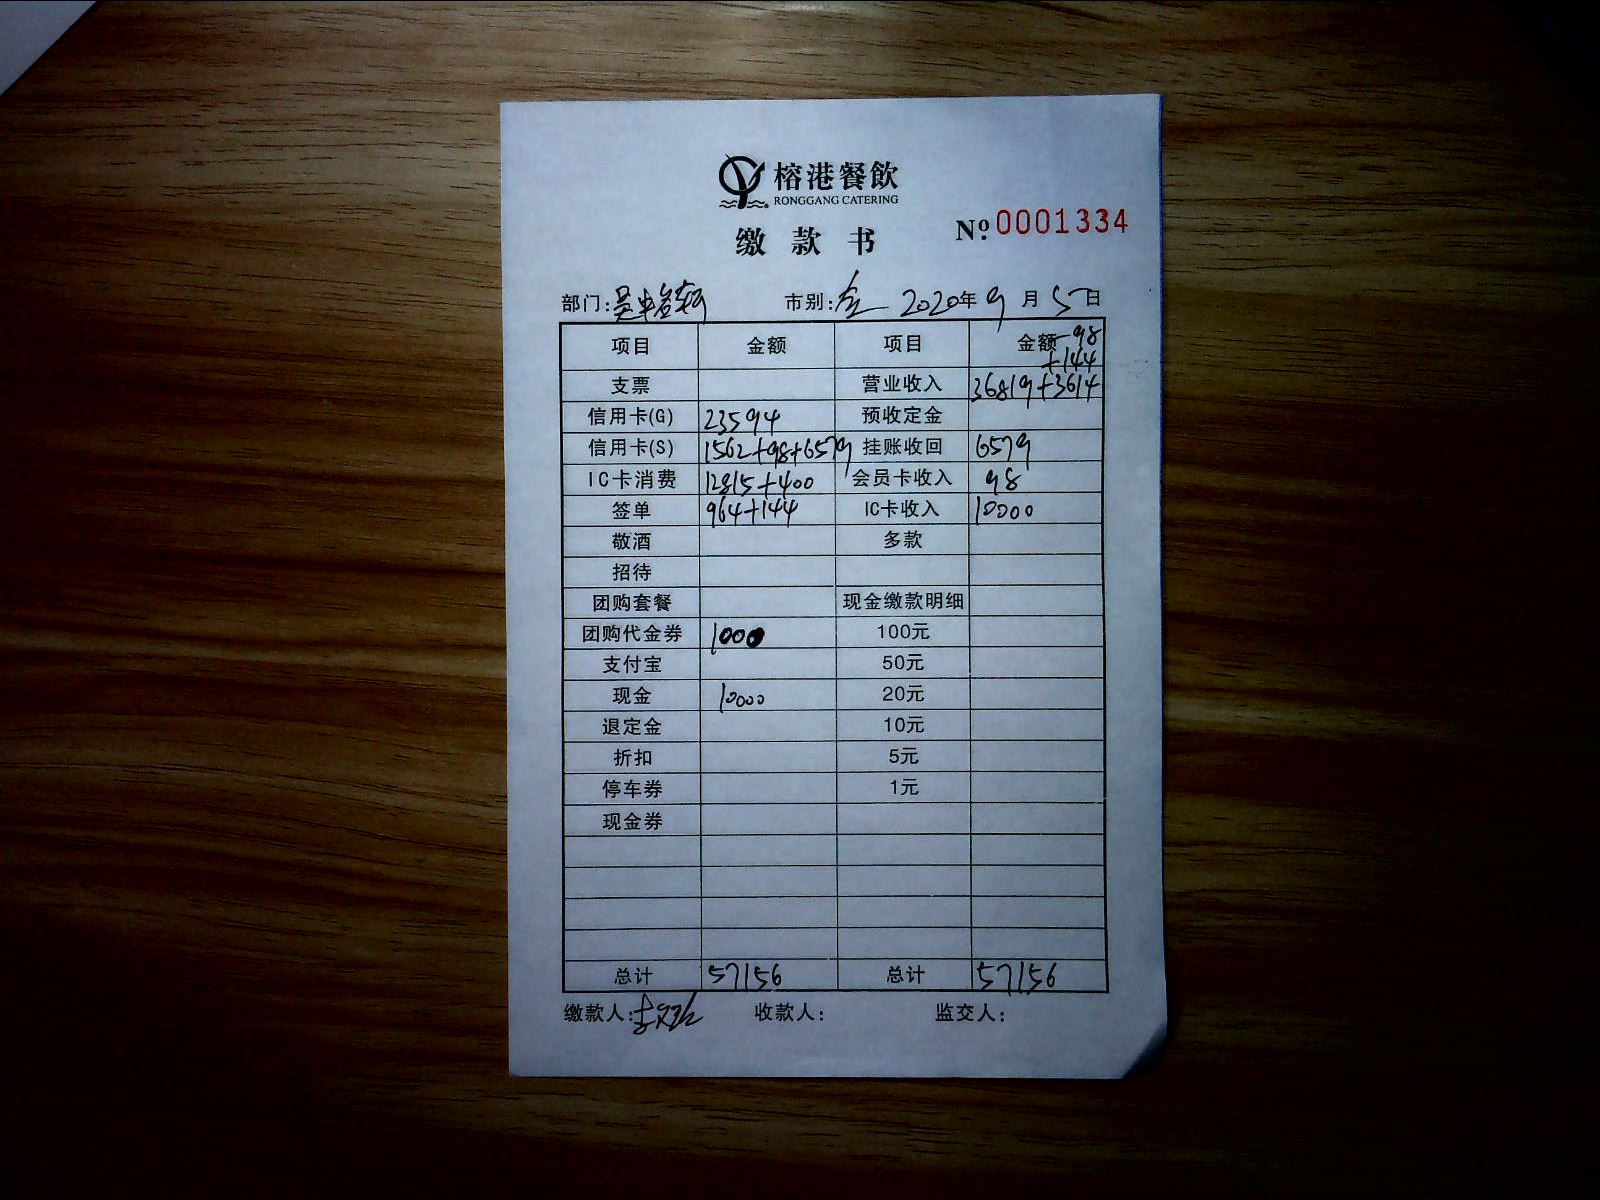 榕港餐飲
RONGGANG CATERING
缴款书
№ 0001334
部门: 市别:全 2020年9月5日
项目 金额 项目 金额 -98
+144
支票 营业收入 36819+3614
信用卡(G) 23594 预收定金
信用卡(S) 1562+98+6579 挂账收回 6579
IC卡消费 12815+400 会员卡收入 98
签单 964+144 IC卡收入 10000
敬酒 多款
招待
团购套餐 现金缴款明细
团购代金券 1000 100元
支付宝 50元
现金 10000 20元
退定金 10元
折扣 5元
停车券 1元
现金券
总计 57156 总计 57156
缴款人: 收款人: 监交人: